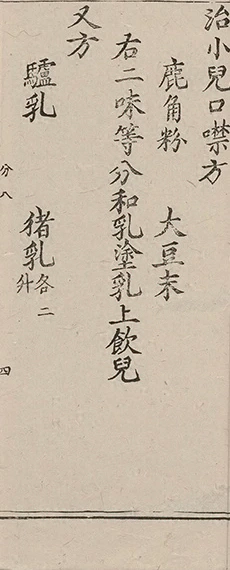 治小兒口噤方
鹿角粉 大豆末
右二味等分和乳塗乳上飲兒
又方
驢乳 猪乳各二升